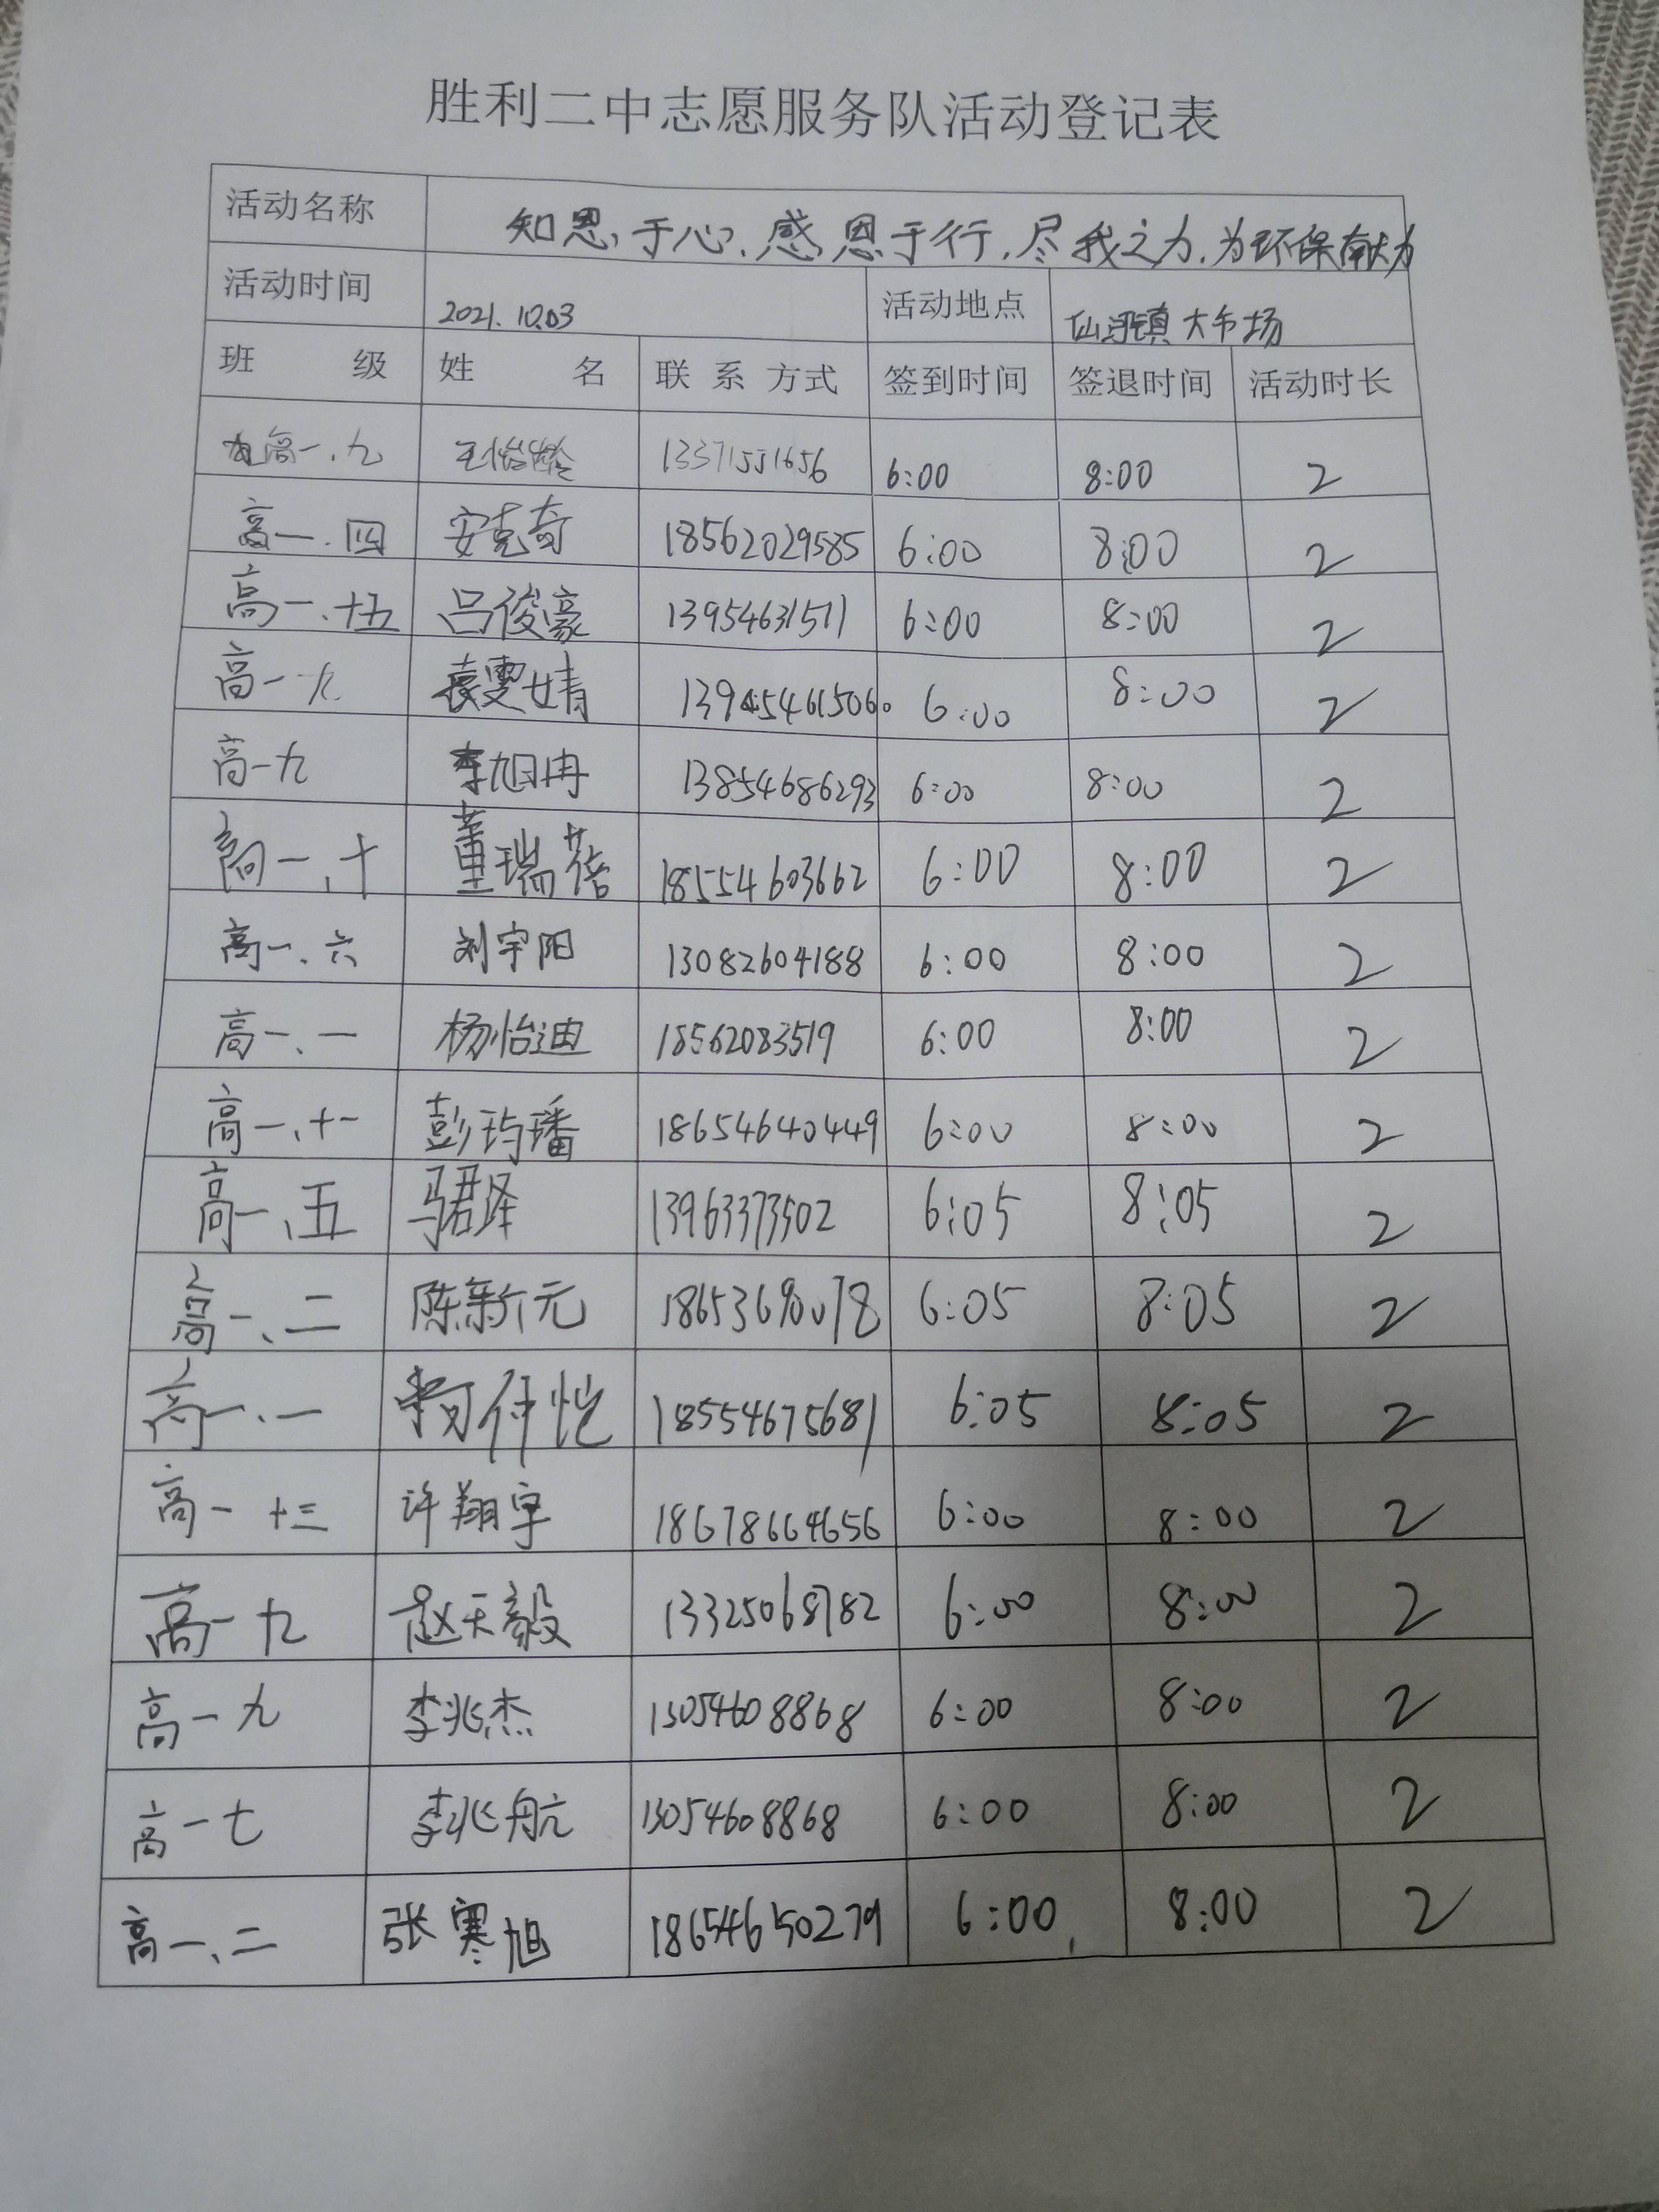 胜利二中志愿服务队活动登记表
活动名称 知恩于心、感恩于行,尽我之力,为环保献力
活动时间 2021.10.03 活动地点 仙河镇大市场
班 级 姓 名 联系方式 签到时间 签退时间 活动时长
高一.九 王怡 13371551656 6:00 8:00 2
高一.四 安克奇 18562029585 6:00 8:00 2
高一、十五 吕俊豪 13954631511 6:00 8:00 2
高一 袁雯婧 6:00 8:00 2
高一九 李旭冉 13854686293 6:00 8:00 2
高一、十 董瑞蓓 18554603662 6:00 8:00 2
高一、六 刘宇阳 13082604188 6:00 8:00 2
高一、一 杨怡迪 18562083519 6:00 8:00 2
高一、十一 彭玙璠 18654640449 6:00 8:00 2
高一、五 马君泽 13963373502 6:05 8:05 2
高一、二 陈新元 18653690078 6:05 8:05 2
高一、一 18554675681 6:05 8:05 2
高一 十三 许翔宇 18678664656 6:00 8:00 2
高一九 赵天毅 13325068782 6:00 8:00 2
高一九 李兆杰 13054608868 6:00 8:00 2
高一七 李兆航 13054608868 6:00 8:00 2
高一、二 张寒旭 18654650279 6:00 8:00 2